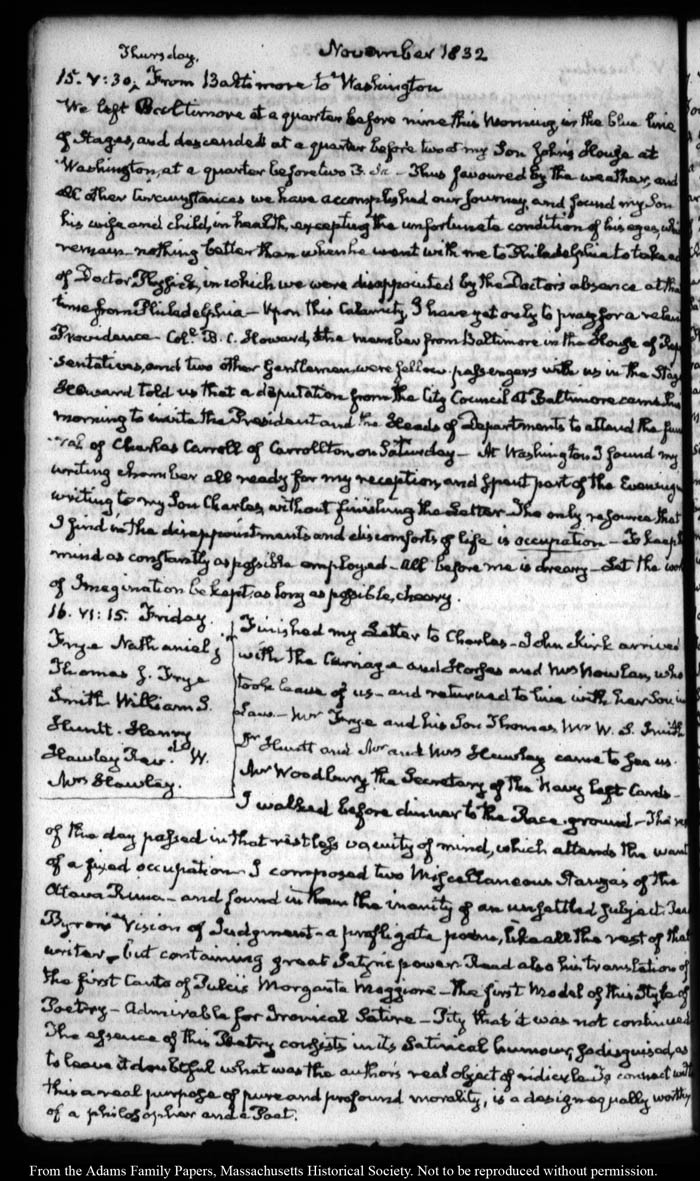 November 1832
Thursday.
15. V:30. From Baltimore to Washington
We left Baltimore at a quarter before nine this Morning, in the blue line
of Stages, and descended at a quarter before two at my Son John's House at
Washington, at a quarter before two Thus favoured by the weather, and
all other Circumstances we have accomplished our Journey, and found my Son
his wife and child, in health, excepting the unfortunate condition of his eyes,
remain nothing better than when he went with me to Philadelphia to take
of Doctor Physick, in which we were disappointed by the Doctor's absence at
time from Philadelphia — Upon this Calamity, I have yet only to pray for a
Providence. Coll. B. C. Howard, the member from Baltimore in the House of Rep
sentatives, and two other Gentlemen, were fellow passengers with us in the Stage
Howard told us that a deputation from the City Council at Baltimore came this
morning to invite the President and the Heads of Departments to attend the fun
ral of Charles Carroll of Carrollton on Saturday — At Washington I found my
writing chamber all ready for my reception, and spent part of the Evening
writing to my Son Charles, without finishing the Letter. The only resource that
I find in the disappointments and discomforts of life is occupation — To keep
mind as constantly as possible employed — All before me is dreary — Let the
of Imagination be kept, as long as possible, cheery.
16. VI:15. Friday.
Frye Nathaniel
Thomas J. Frye
Smith William S.
Huntt. Henry
Hawley Revd. W.
Mrs Hawley.
Finished my Letter to Charles — John Kirk arrived
with the Carriage and Horses and Mrs Nowlan, who
took leave of us — and returned to live with her Son in
Law — Mr Frye and his Son Thomas, Mr W. S. Smith
Dr Huntt and Mr and Mrs Hawley came to see us.
Mr Woodbury the Secretary of the Navy left Cards —
I walked before dinner to the Race-ground — The
of the day passed in that restless vacuity of mind, which attends the want
of a fixed occupation. I composed two Miscellaneous Stanzas of the
and found in them the inanity of an unsettled subject.
Byron's Vision of Judgment — a profligate poem, like all the rest of that
writer, but containing great Satyric power. Read also his translation of
the first Canto of Pulci's Morgante Maggiore — the first Model of this Style of
Poetry — Admirable for Ironical Satire — Pity that it was not continued
The essence of this Poetry consists in its Satirical humour, so disguised, as
to leave it doubtful what was the author's real object of ridicule. To connect with
this a real purpose of pure and profound morality, is a design equally worthy
of a philosopher and a Poet.
From the Adams Family Papers, Massachusetts Historical Society. Not to be reproduced without permission.